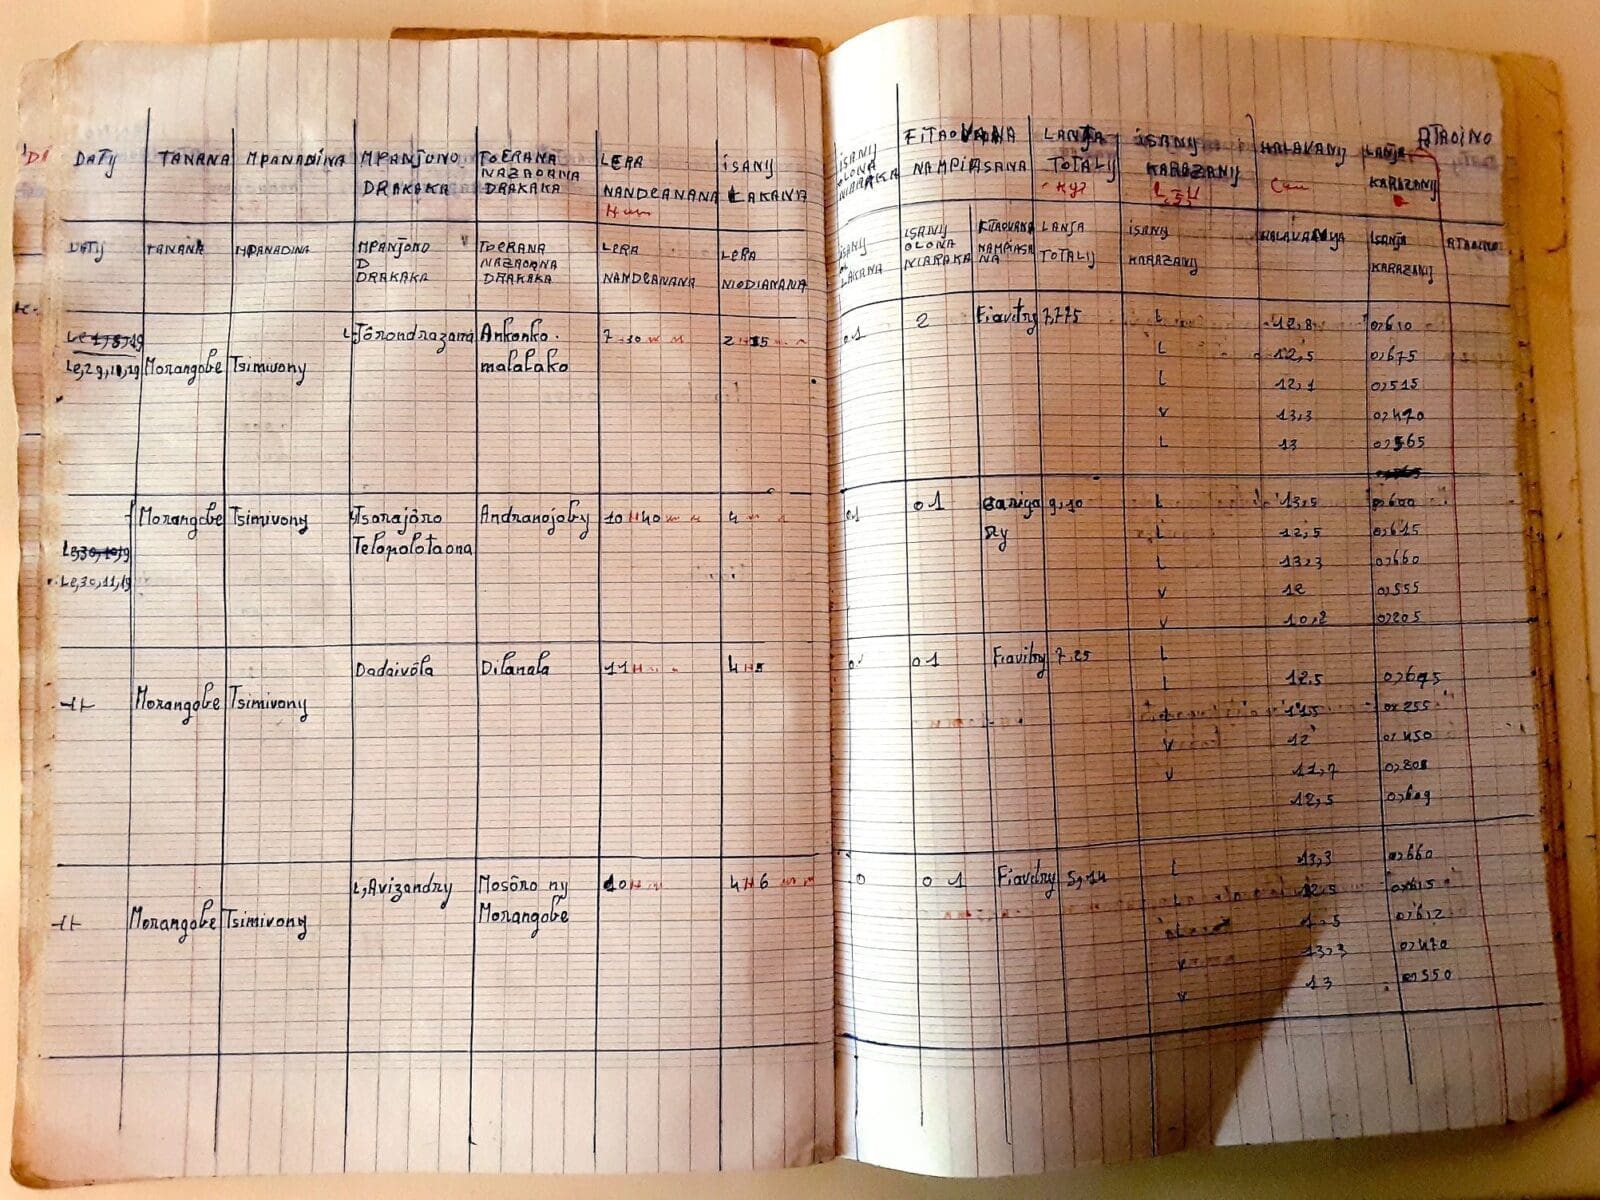 DATY TANANA MPANADINA MPANJONO DRAKAKA TOERANA NAZAOANA DRAKAKA LERA NANDEANANA ISANY LAKANA
ISANY OLONA NIARAKA FITAOVANA NAMPIASANA LANJA TOTALY kg ISANY KARAZANY HALAVANY LANJA KARAZANY ATAOINO
DATY TANANA MPANADINA MPANJONO D DRAKAKA TOERANA NAZAOANA DRAKAKA LERA NANDEANANA LERA NIODIANANA
ISANY LAKANA ISANY OLONA NIARAKA FITAOVANA NAMPIASA NA LANJA TOTALY ISANY KARAZANY HALAVANYA LANJA KARAZANY ATAOINO
Jôrondrazana Ankonko- 7 30 2 H 15
Le,29,10,19 Morangobe Tsimivony malalako
01 2 Fiavitry 7,775 L 12,8 0,610
L 12,5 0,675
L 12,1 0,515
V 13,3 0,470
L 13 0,565
Morangobe Tsimivony Tsarajôro Andranojoby 10 H40 4
Telopolotaona
Le,30,11,19
01 01 9,10 L 13,5 0,600
L 12,5 0,615
L 13,3 0,660
V 12 0,555
V 10,2 0,205
Dadaivôla Dilanala 11H 4 H5
-//- Morangobe Tsimivony
01 01 Fiavitry 7,25 L
L 12,5 0,695
11,5 0,255
V 12 0,450
V 11,7
12,5 0,609
L,Avizandry Mosôro ny 10H 4H6
-//- Morangobe Tsimivony Morangobe
0 01 Fiavitry 5,14 L 13,3 0,660
12,5 0,615
0,612
V 13,3 0,470
V 13 0,550